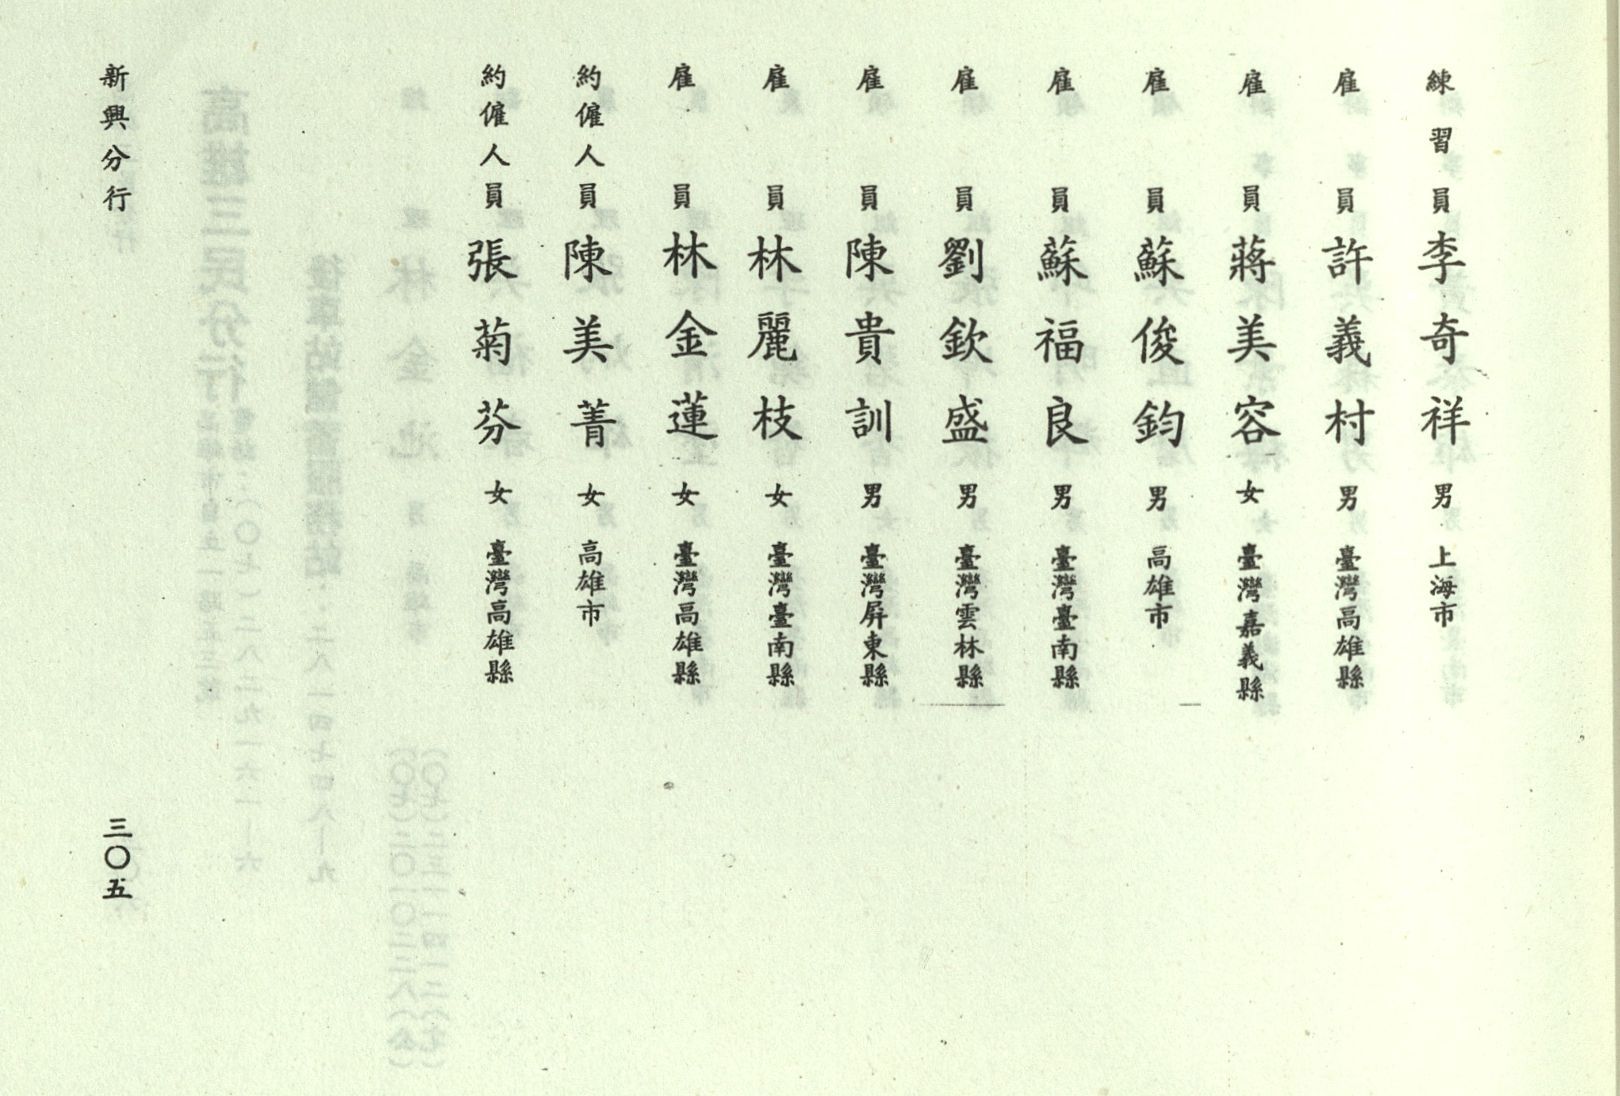 練習員李奇祥男上海市
雇員許義村男臺灣高雄縣
雇員蔣美容女臺灣嘉義縣
雇員蘇俊鈞男高雄市
雇員蘇福良男臺灣臺南縣
雇員劉欽盛男臺灣雲林縣
雇員陳貴訓男臺灣屏東縣
雇員林麗枝女臺灣臺南縣
雇員林金蓮女臺灣高雄縣
約僱人員陳美菁女高雄市
約僱人員張菊芬女臺灣高雄縣
新興分行
三〇五